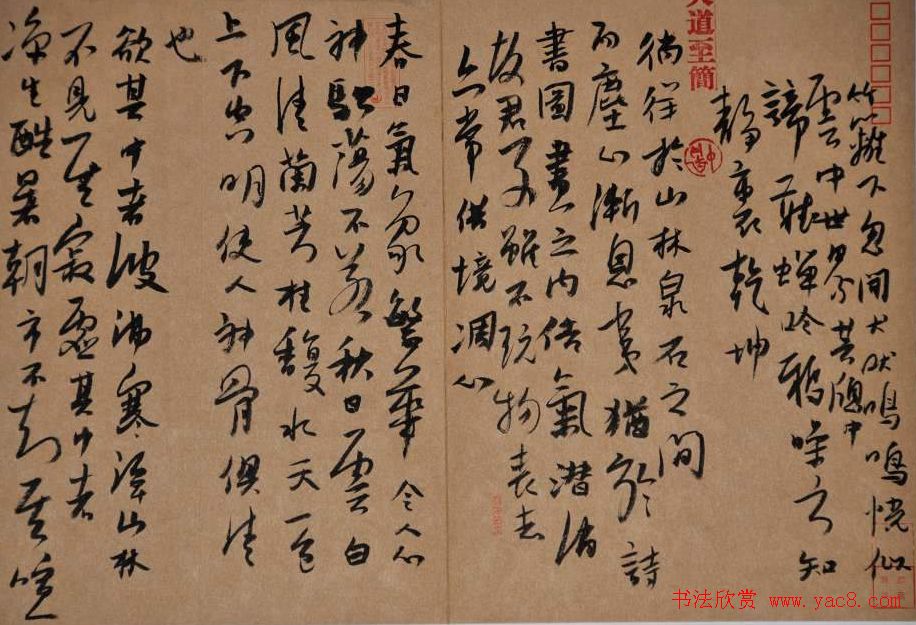 大道至簡
竹籬下忽聞犬吠鳴鳴恍似
雲中世界芸窗中
諦聽蟬吟鴉噪方知
靜裏乾坤
徜徉於山林泉石之間
而塵心漸息夷猶於詩
書圖畫之內俗氣潛消
故君子雖不玩物喪志
亦常借境調心
春日氣象繁華令人心
神駘蕩不若秋日雲白
風清蘭芳桂馥水天一色
上下空明使人神骨俱清
也
欲其中者波沸寒潭山林
不見其寂虛其中者
涼生酷暑朝市不知其喧
书法欣赏 www.yac8.com